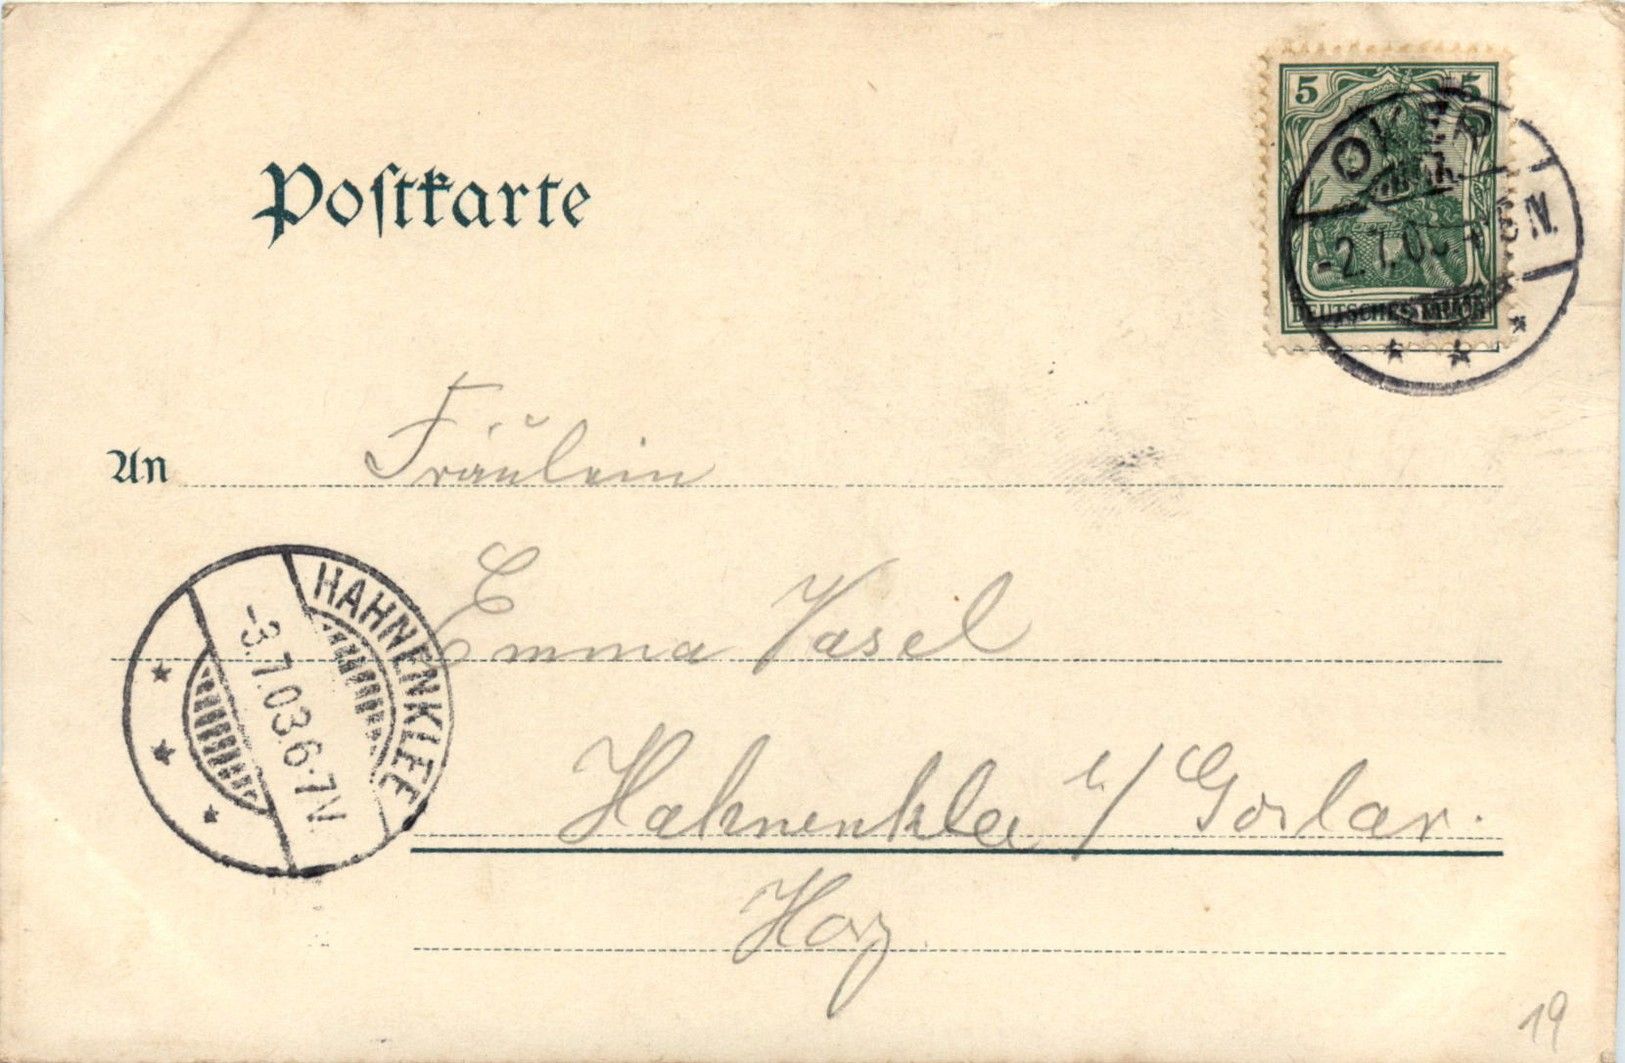 5 5
OKER
-2.7.03 4-5N.
DEUTSCHES REICH
Postkarte
An Fräulein
Emma Vasel
HAHNENKLEE
-3.7.03.6-7V.
Hahnenklee b/ Goslar.
Harz.
19